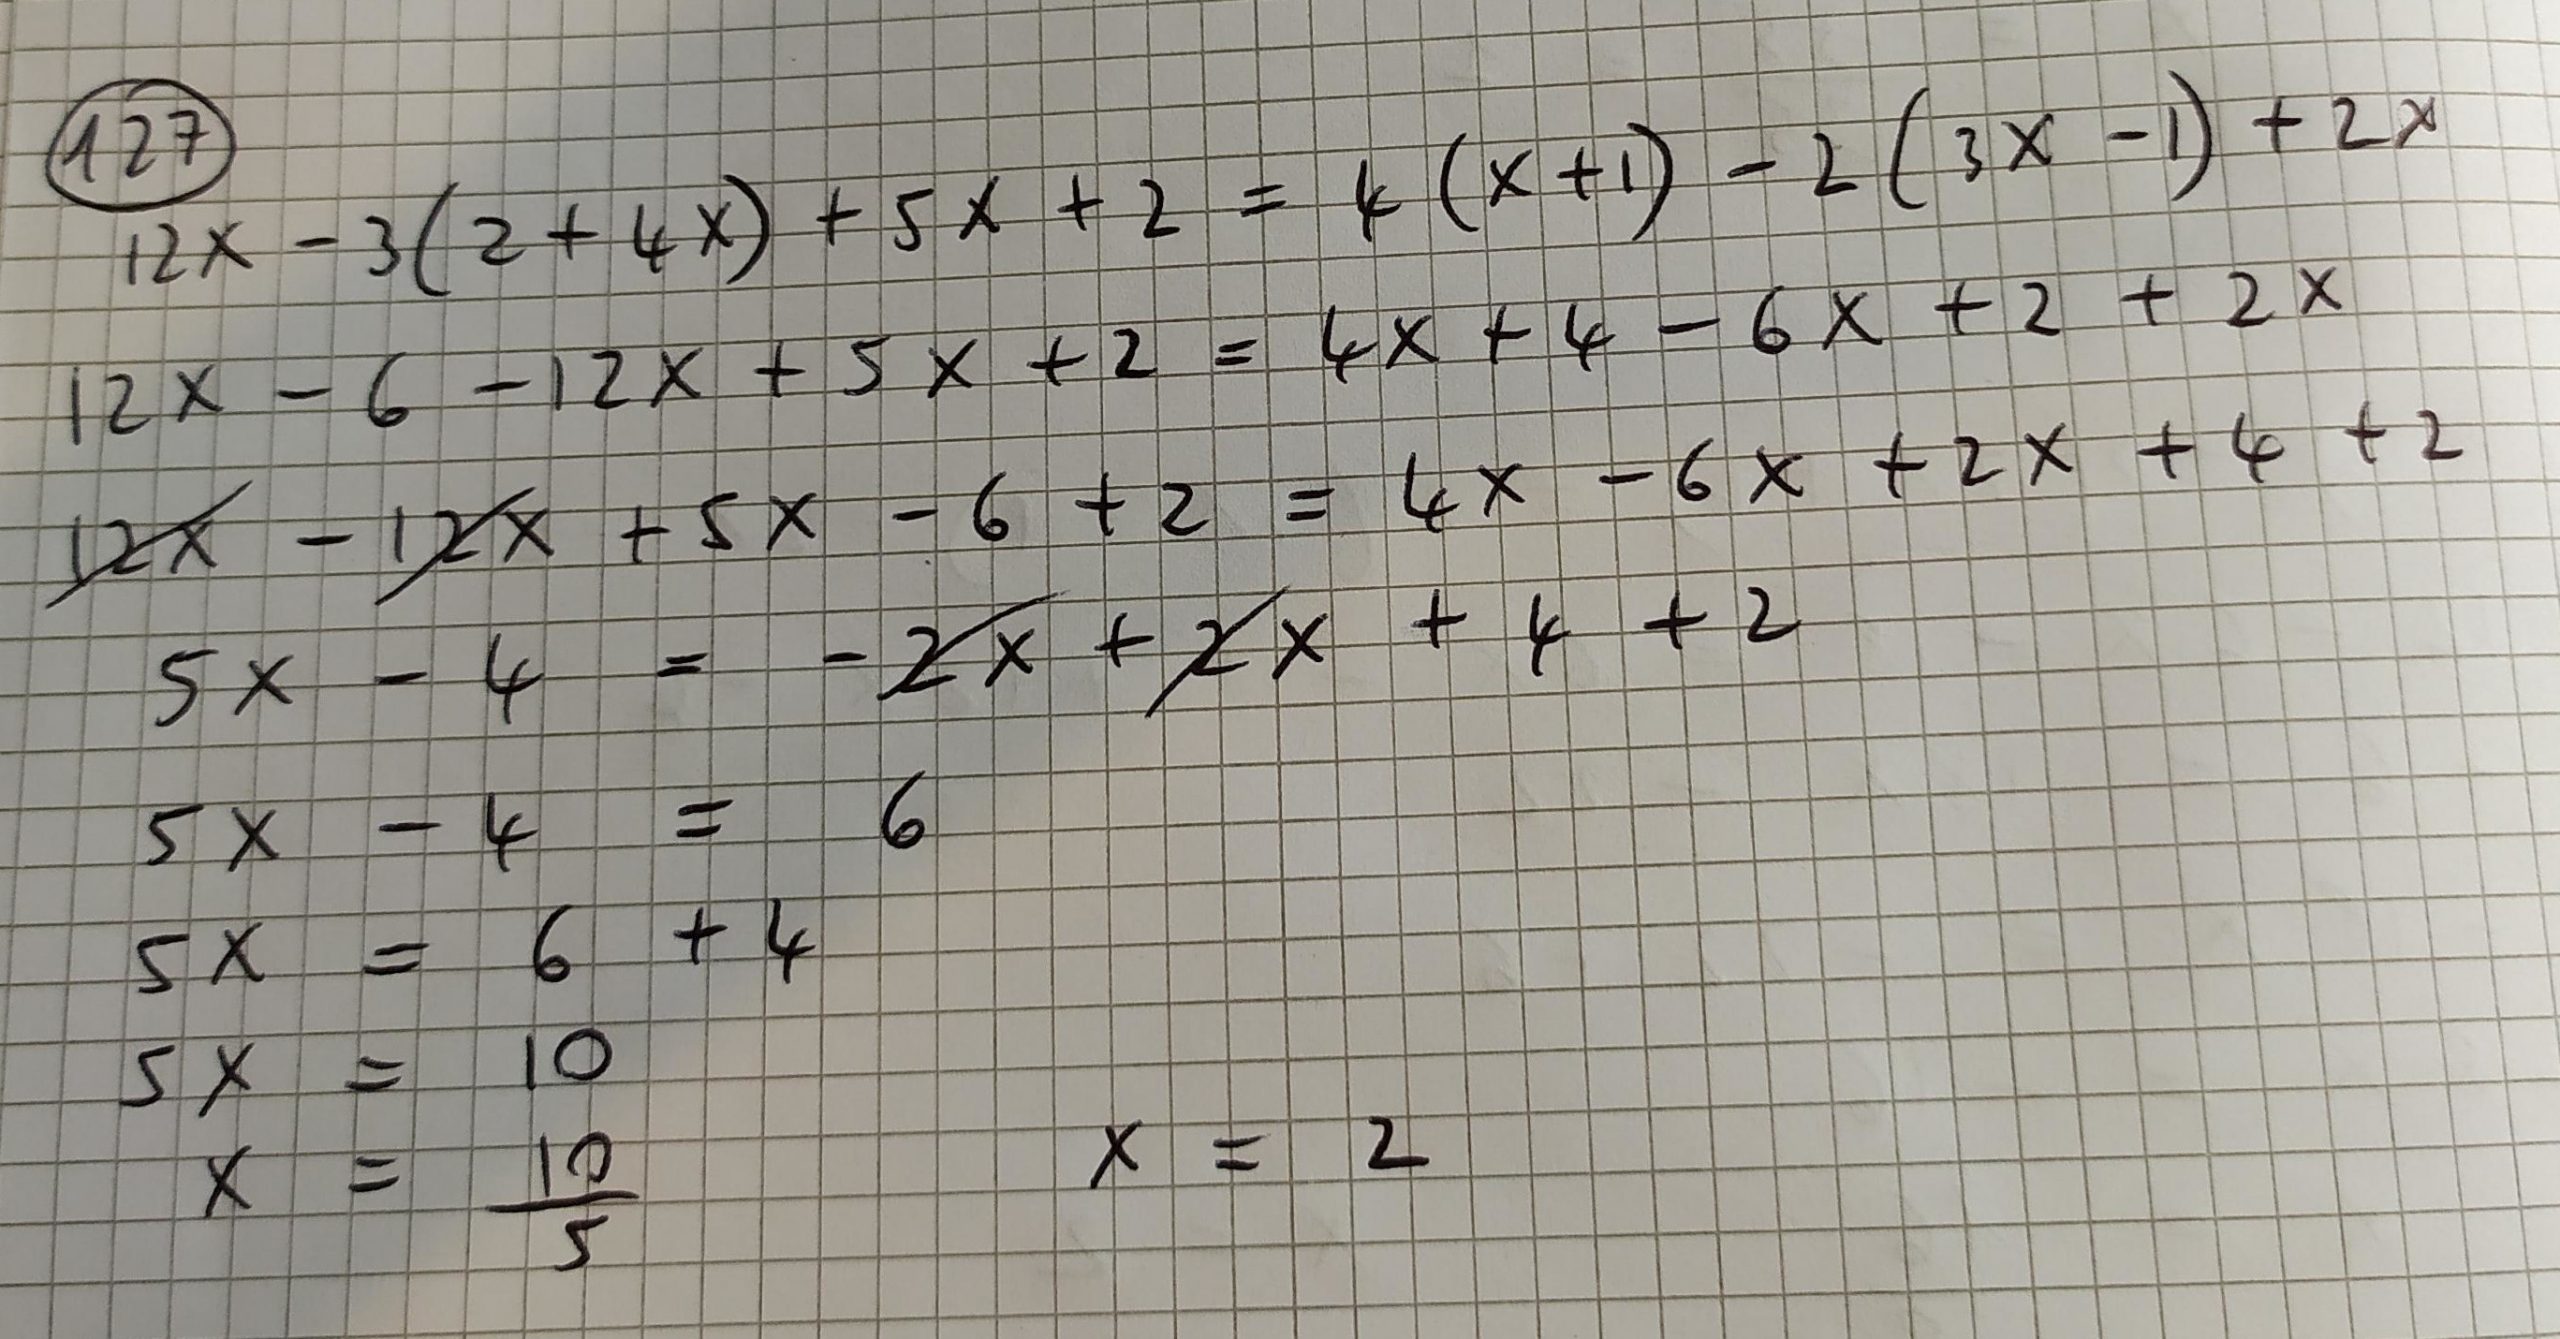 127
12x - 3(2 + 4x) + 5x + 2 = 4(x+1) - 2(3x - 1) + 2x
12x - 6 - 12x + 5x + 2 = 4x + 4 - 6x + 2 + 2x
12x - 12x + 5x - 6 + 2 = 4x - 6x + 2x + 4 + 2
5x - 4 = - 2x + 2x + 4 + 2
5x - 4 = 6
5x = 6 + 4
5x = 10
x = 10/5 x = 2